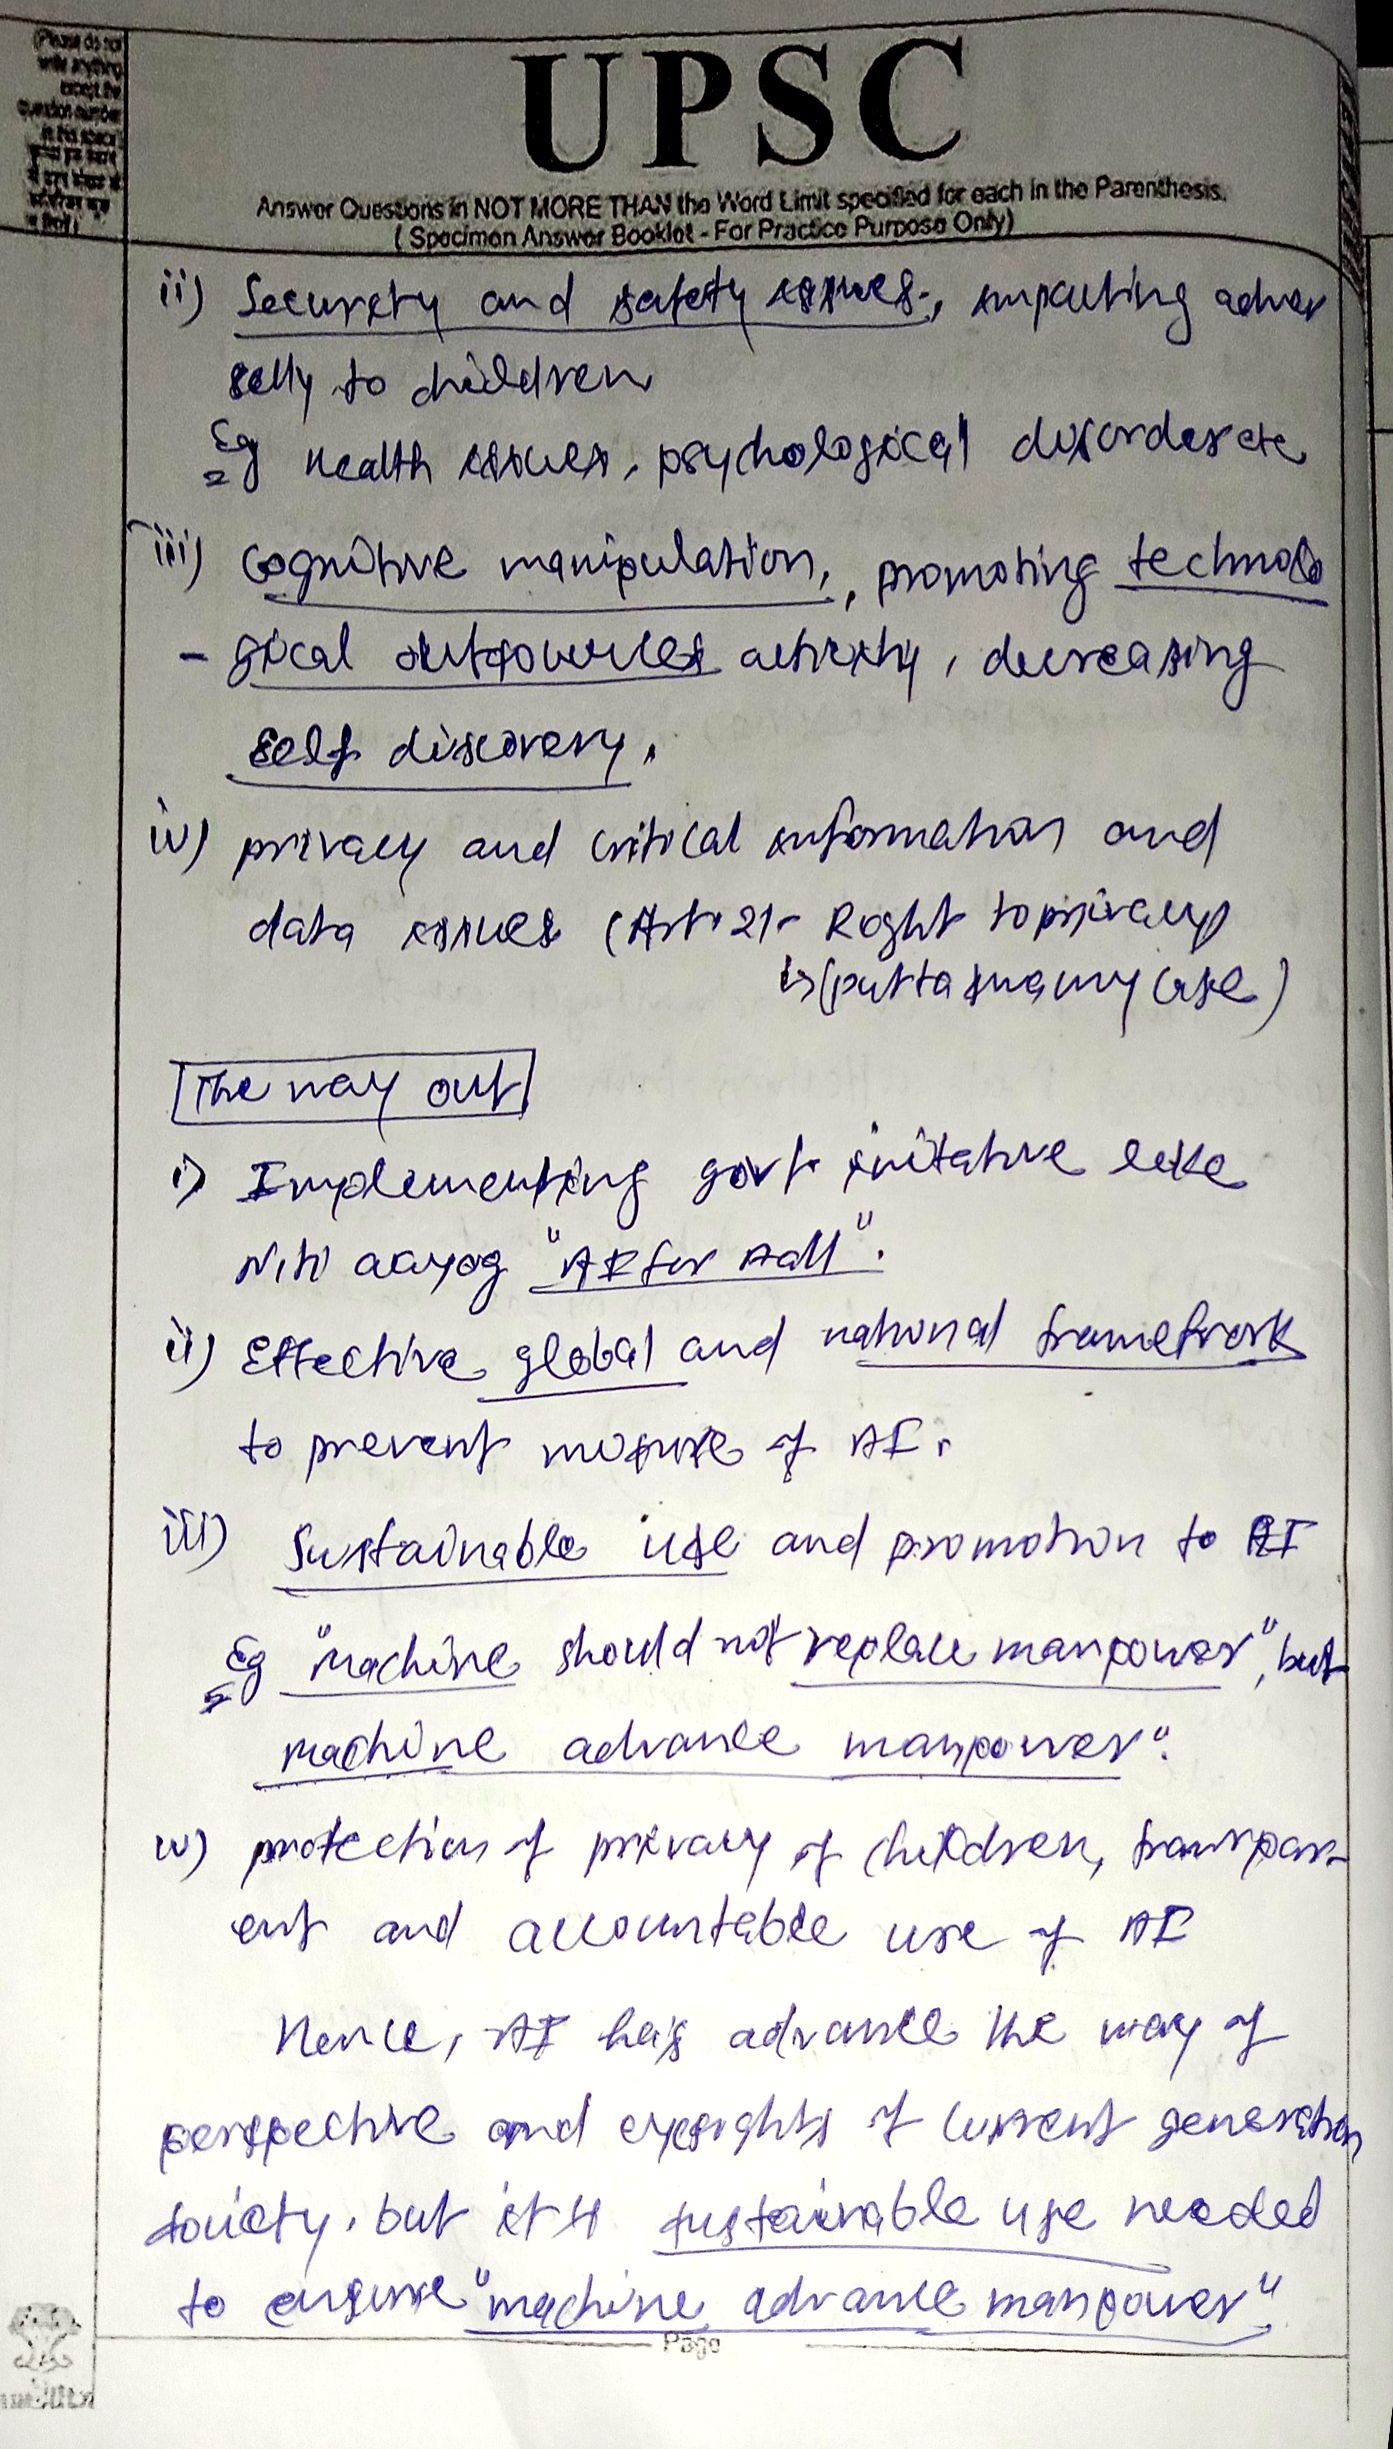 (Please do not
write anything
except the
question number
in this space)
UPSC
Answer Questions in NOT MORE THAN the Word Limit specified for each in the Parenthesis.
( Specimen Answer Booklet - For Practice Purpose Only)
ii) Security and safety issues, impacting adver
selly to children
Eg Health issues, psychological disorders etc
iii) Cognitive manipulation, promoting technolo
- gical outsources activity, decreasing
self discovery.
iv) privacy and critical information and
data issues (Art. 21 - Right to privacy)
↳ (puttaswamy case)
The way out
i) Implementing govt. initative like
Niti aayog "AI for Aall".
ii) Effective global and national framework
to prevent misuse of AI.
iii) Sustainable use and promotion to AI
Eg "Machine should not replace manpower", but
machine advance manpower".
iv) protection of privacy of children, transpar-
ent and accountable use of AI
Hence, AI has advance the way of
perspective and eyesights of current generation
society, but it's sustainable use needed
to ensure "machine advance manpower"
Page